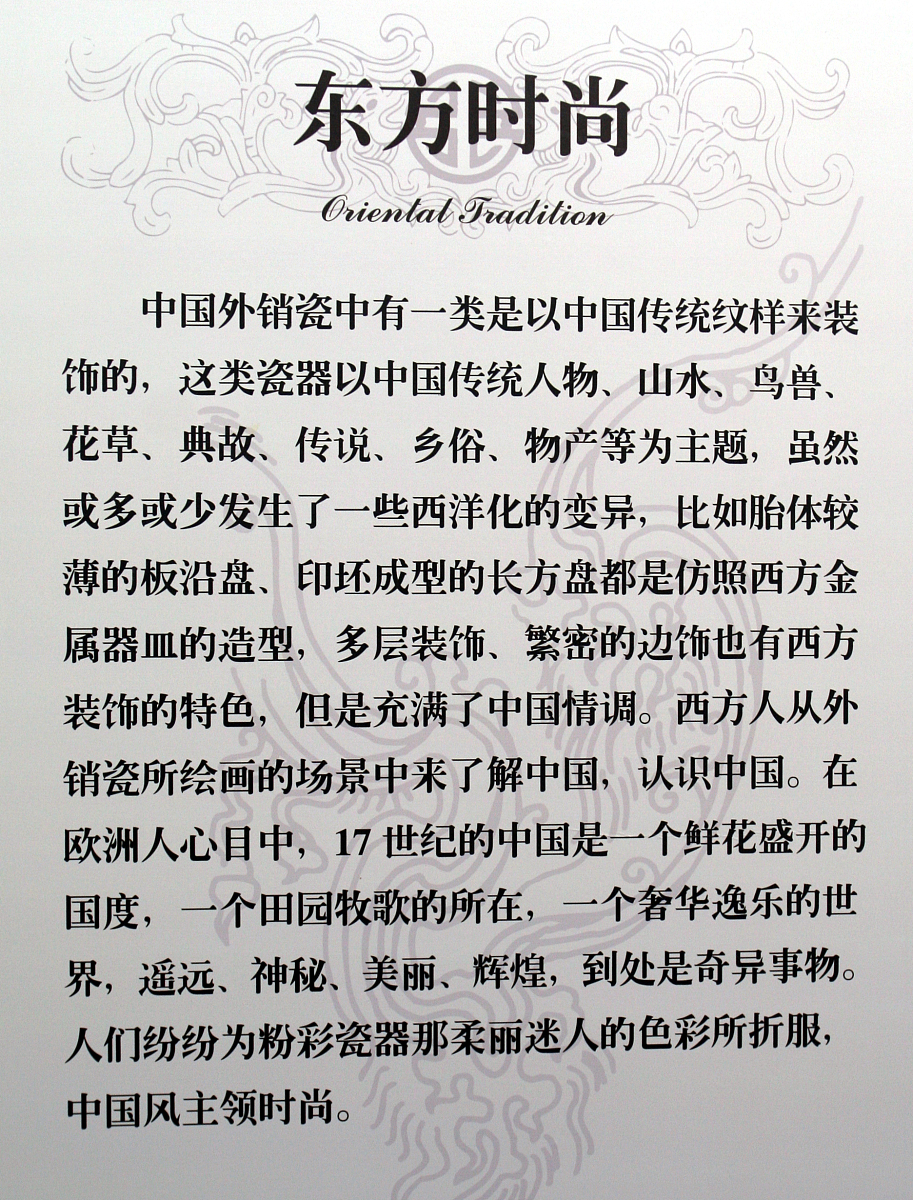 东方时尚
Oriental Tradition
中国外销瓷中有一类是以中国传统纹样来装
饰的，这类瓷器以中国传统人物、山水、鸟兽、
花草、典故、传说、乡俗、物产等为主题，虽然
或多或少发生了一些西洋化的变异，比如胎体较
薄的板沿盘、印坯成型的长方盘都是仿照西方金
属器皿的造型，多层装饰、繁密的边饰也有西方
装饰的特色，但是充满了中国情调。西方人从外
销瓷所绘画的场景中来了解中国，认识中国。在
欧洲人心目中，17 世纪的中国是一个鲜花盛开的
国度，一个田园牧歌的所在，一个奢华逸乐的世
界，遥远、神秘、美丽、辉煌，到处是奇异事物。
人们纷纷为粉彩瓷器那柔丽迷人的色彩所折服，
中国风主领时尚。